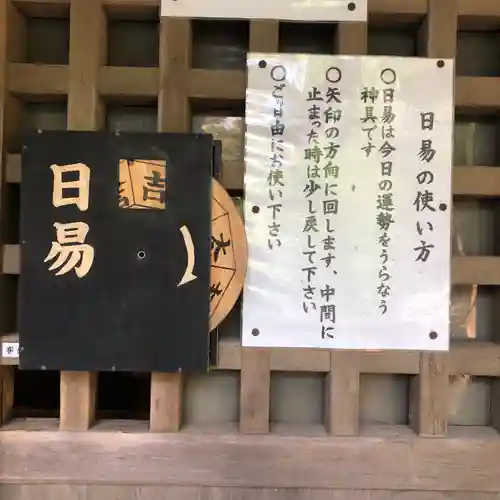 日易の使い方
○日易は今日の運勢をうらなう
神具です
○矢印の方向に回します、中間に
止まった時は少し戻して下さい
○ご自由にお使い下さい
日易
吉
大